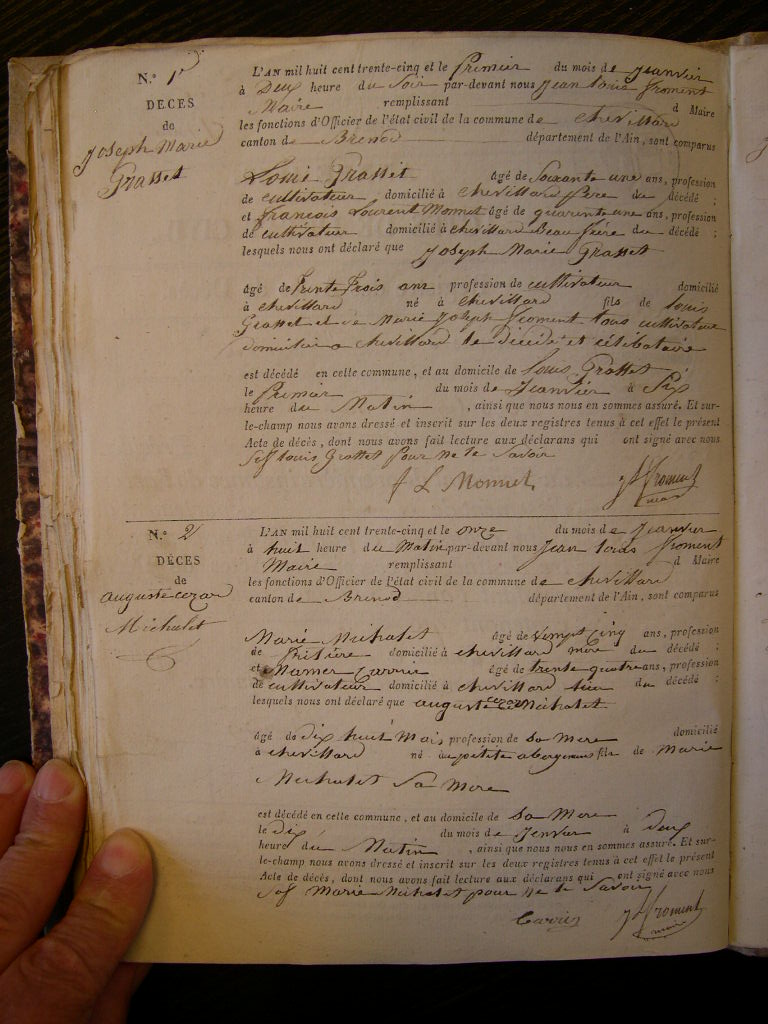 N.° 1er
DECES
de
Joseph Marie
Grasset
L'AN mil huit cent trente-cinq et le premier du mois de Jeanvier
à Deux heure du Soir par-devant nous Jean Louis Froment
Maire remplissant d Maire
les fonctions d'Officier de l'état civil de la commune de chevillard
canton de Brenod département de l'Ain, sont comparus
Louis Grasset âgé de Soixante une ans, profession
de cultivateur domicilié à chevillard père du décédé ;
et francois Laurent Monnet âgé de quarente une ans, profession
de cultivateur domicilié à chevillard Beau frère du décédé ;
lesquels nous ont déclaré que Joseph Marie Grasset
âgé de trente trois ans profession de cultivateur domicilié
à chevillard né à chevillard fils de Louis
Grasset et de Marie Joseph Froment tous cultivateur
a chevillard le Décidé et célibataire
est décédé en celle commune, et au domicile de Louis Grasset
le Premier du mois de Jeanvier à Six
heure du Matin , ainsi que nous nous en sommes assuré. Et sur-
le-champ nous avons dressé et inscrit sur les deux registres tenus à cet effet le présent
Acte de décès, dont nous avons fait lecture aux déclarans qui ont signé avec nous
Sof Louis Grasset pour ne le Savoir
f L Monnet J L Froment
maire
N.° 2
DÉCES
de
auguste cezar
Michalet
L'AN mil huit cent trente-cinq et le onze du mois de Jeanvier
à huit heure du Matin par-devant nous Jean Louis Froment
Maire remplissant d Maire
les fonctions d'Officier de l'état civil de la commune de chevillard
canton de Brenod département de l'Ain, sont comparus
Marie Michalet âgé de vingt cinq ans, profession
de domicilié à chevillard mère du décédé ;
et Carrier âgé de trente quatre ans, profession
de cultivateur domicilié à chevillard du décédé ;
lesquels nous ont déclaré que auguste cezar Michalet
âgé de dix huit Mois profession de Sa Mere domicilié
à chevillard né au petite fils de Marie
Michalet Sa Mere
est décédé en celle commune, et au domicile de Sa Mere
le dix du mois de Jenvier à deux
heure du Matin , ainsi que nous nous en sommes assuré. Et sur-
le-champ nous avons dressé et inscrit sur les deux registres tenus à cet effet le présent
Acte de décès, dont nous avons fait lecture aux déclarans qui ont signé avec nous
Sof Marie Michalet pour ne le Savoir
Carrier J L Froment
maire